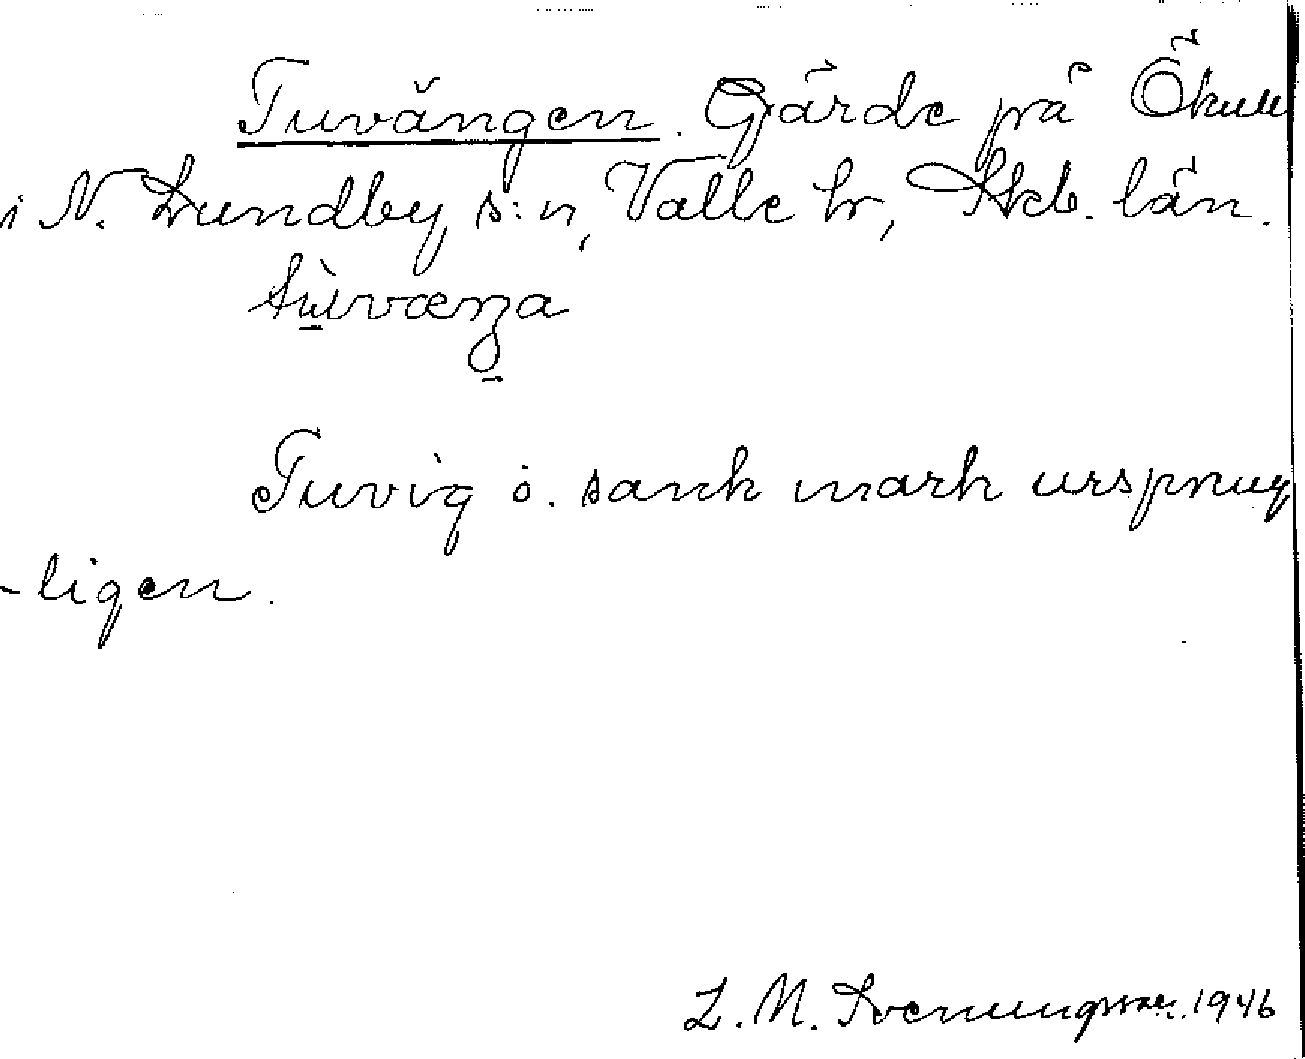 Tuvängen. Gärde på Ökull
i N. Lundby s:n, Valle hr, Skb. län.
Tuvig o. sank mark ursprung
-ligen.
L. M. Svenungsson. 1946